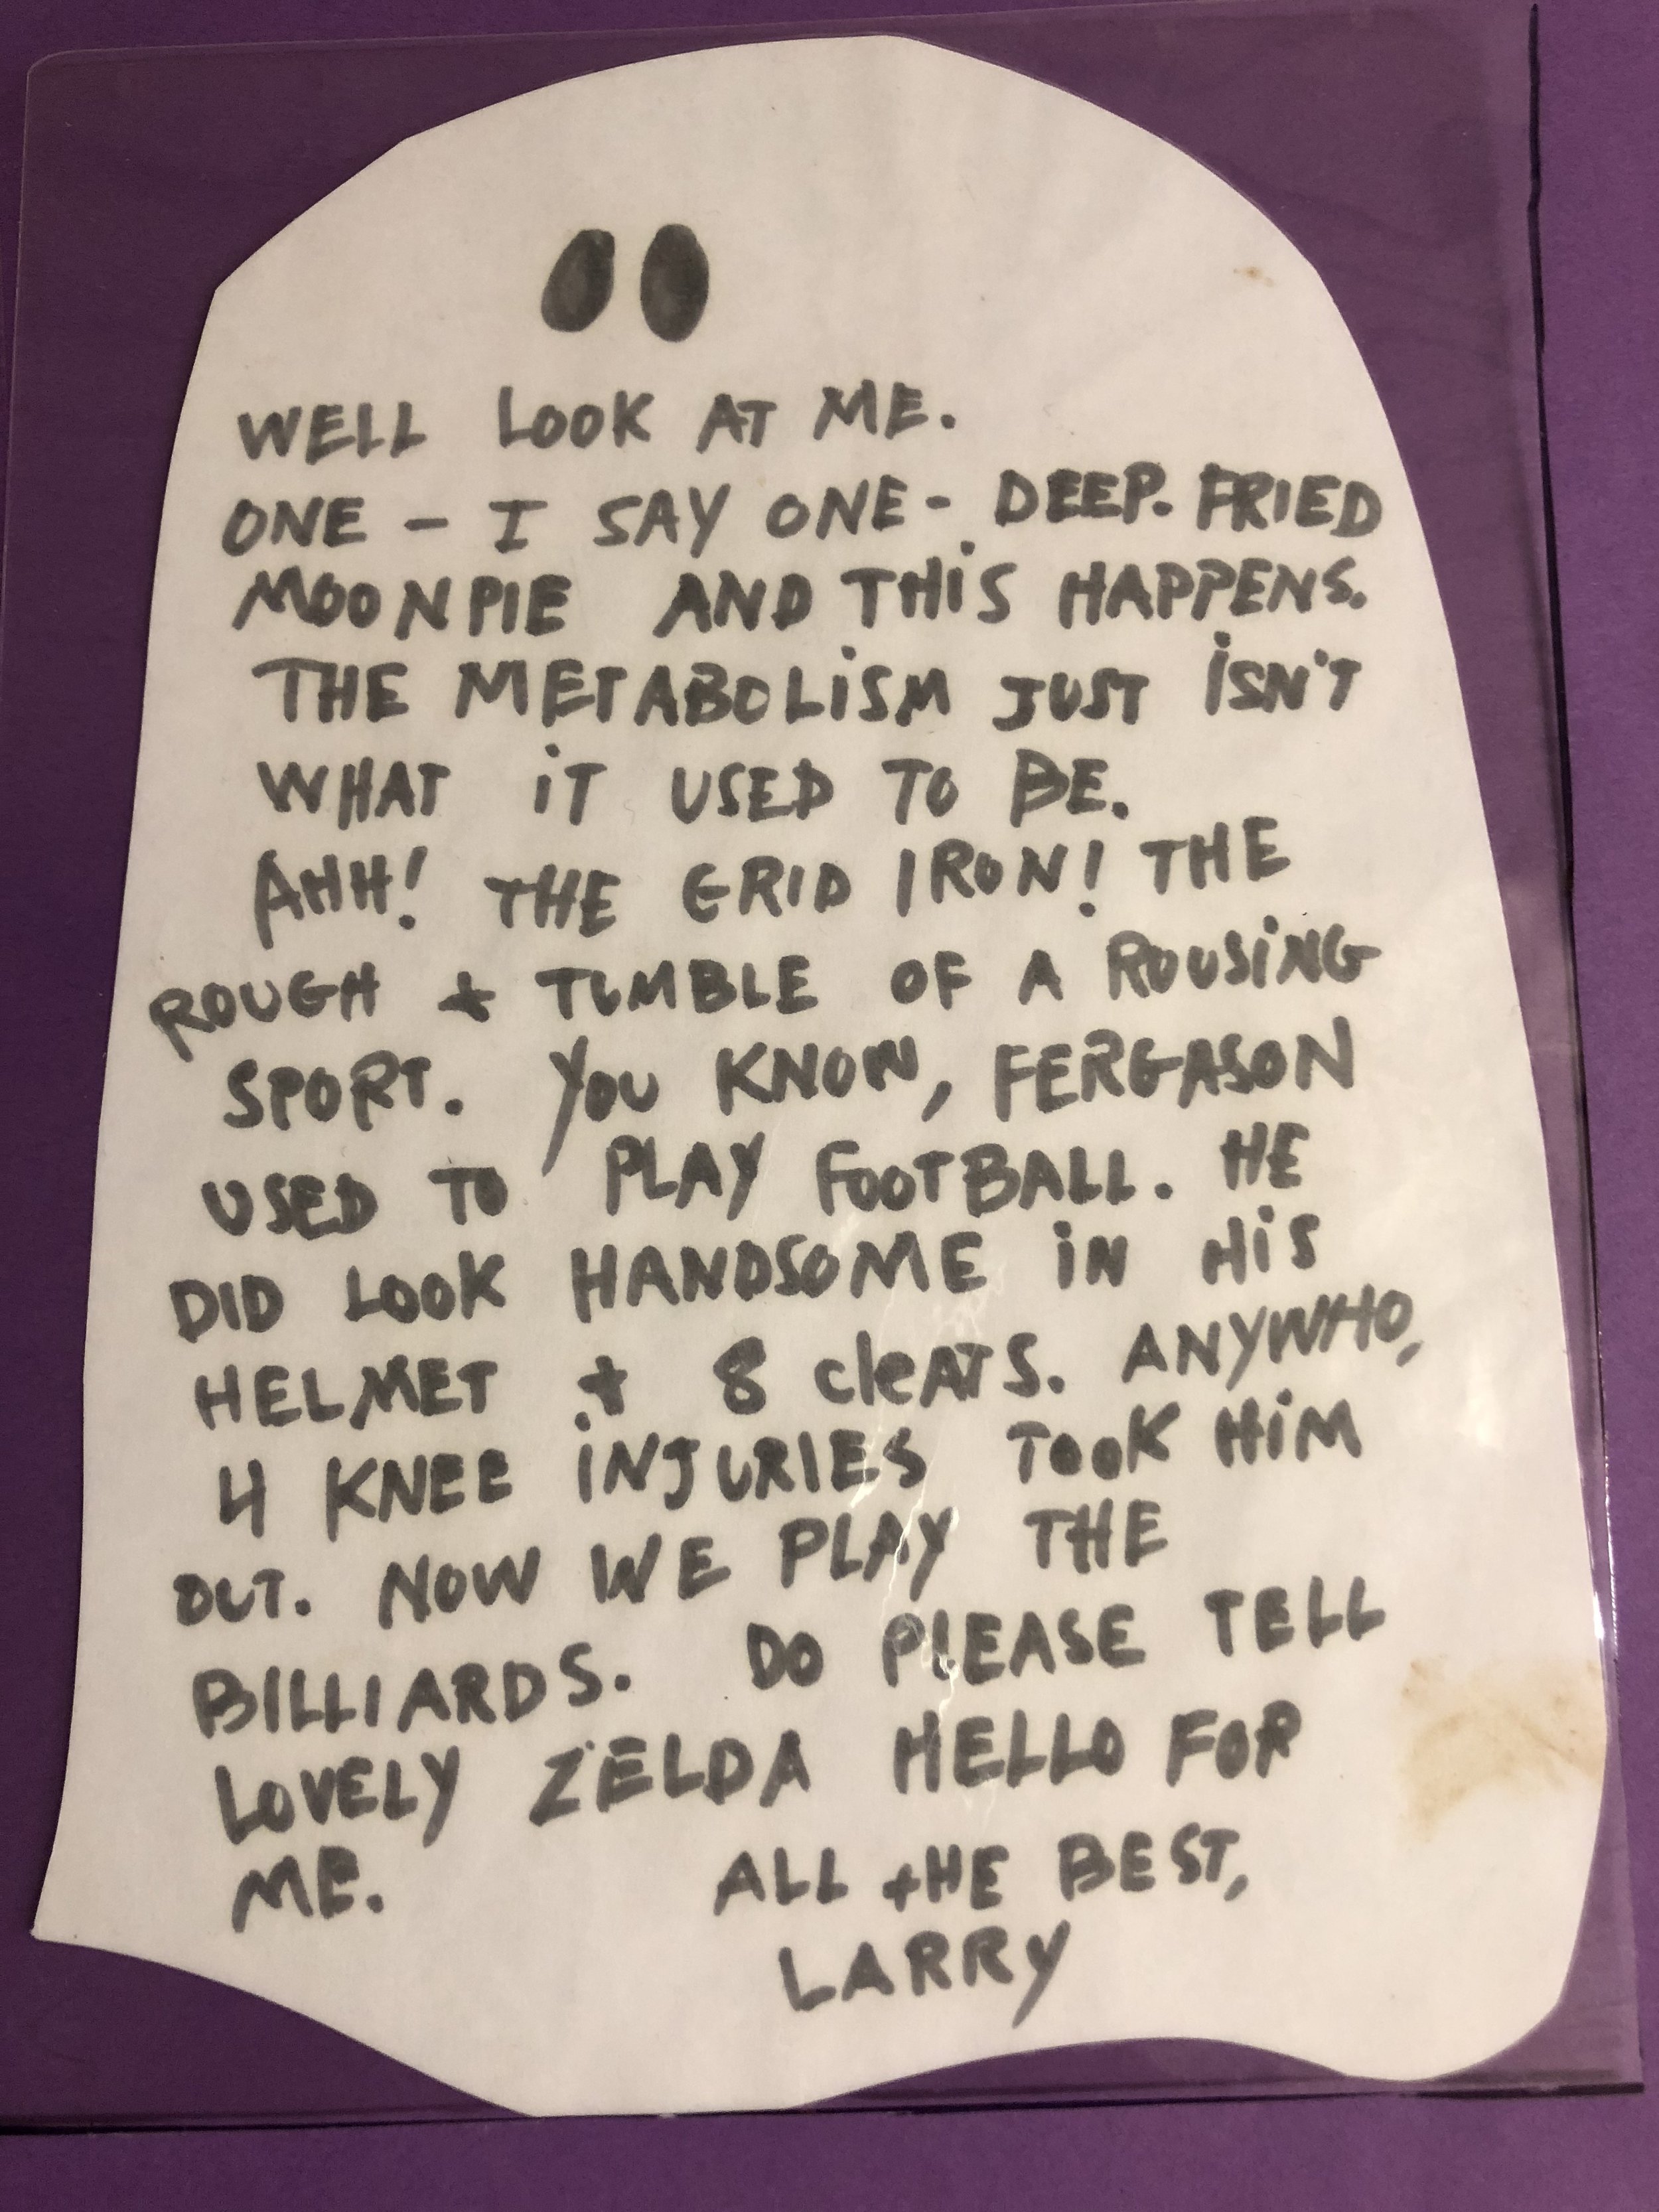 WELL LOOK AT ME.
ONE - I SAY ONE - DEEP. FRIED
MOONPIE AND THiS HAPPENS.
THE METABOLiSM JUST iSN'T
WHAT iT USED TO BE.
AHH! THE GRID IRON! THE
ROUGH + TUMBLE OF A ROUSiNG
SPORT. YOU KNOW, FERGASON
USED TO PLAY FOOTBALL. HE
DID LOOK HANDSOME iN HiS
HELMET + 8 cleATS. ANYWHO,
4 KNEE iNJURIES TOOK HiM
OUT. NOW WE PLAY THE
BILLIARDS. DO PLEASE TELL
LOVELY ZELDA HELLO FOR
ME. ALL tHE BEST,
LARRY